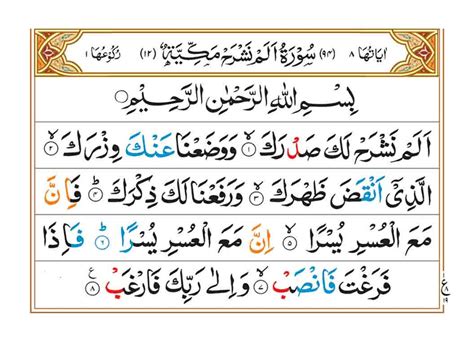 اٰیَاتُهَا ۸ (۹۴) سُوْرَةُ اَلَمْ نَشْرَحْ مَكِّیَّةٌ (۱۲) رُكُوْعُهَا ۱
بِسْمِ اللّٰهِ الرَّحْمٰنِ الرَّحِیْمِ
اَلَمْ نَشْرَحْ لَكَ صَدْرَكَ ۱ وَوَضَعْنَا عَنْكَ وِزْرَكَ ۲
الَّذِیْۤ اَنْقَضَ ظَهْرَكَ ۳ وَرَفَعْنَا لَكَ ذِكْرَكَ ۴ فَاِنَّ
مَعَ الْعُسْرِ یُسْرًا ۵ اِنَّ مَعَ الْعُسْرِ یُسْرًا ۶ فَاِذَا
فَرَغْتَ فَانْصَبْ ۷ وَاِلٰی رَبِّكَ فَارْغَبْ ۸